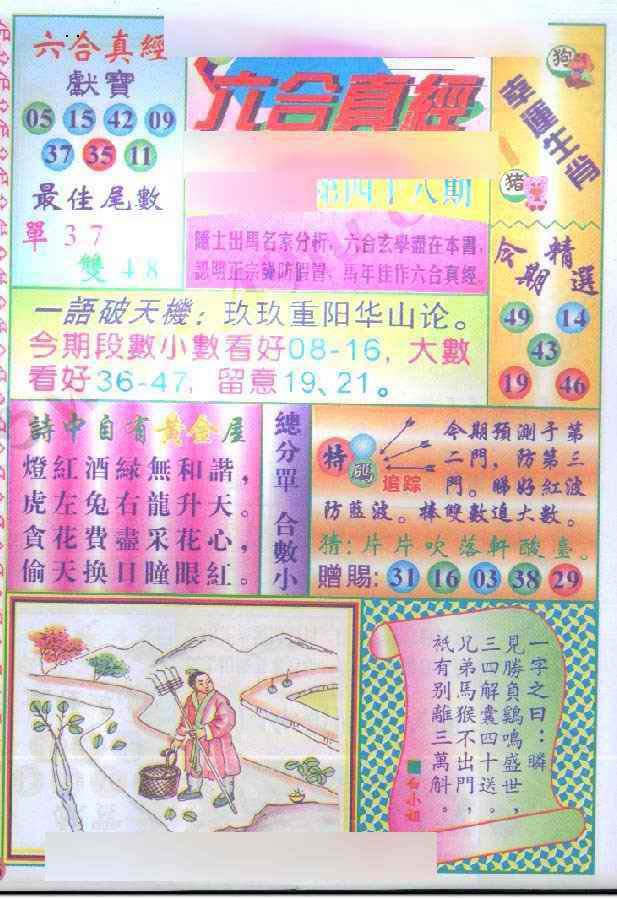 六合真經
獻寶
05 15 42 09
37 35 11
最佳尾數
單 3 7
雙 4 8
六合真經
第四十八期
隱士出馬名家分析，六合玄學盡在本書，
認明正宗謹防假冒，馬年佳作六合真經。
狗
幸運生肖
猪
今期精選
49 14
43
19 46
一語破天機：玖玖重阳华山论。
今期段數小數看好08-16，大數
看好36-47，留意19、21。
詩中自有黃金屋
燈紅酒綠無和諧，
虎左兔右龍升天。
貪花費盡采花心，
偷天換日瞳眼紅。
總分單 合數小
特碼追踪
今期預測于第
二門，防第三
門。睇好紅波
防藍波。棒雙數追大數。
猜：片片吹落軒酸臺。
贈賜：31 16 03 38 29
一字之曰：瞬
見勝負鷄鳴盛世，
三四解囊四十送。
兄弟馬猴不出門，
祇有別離三萬斛。
白小姐